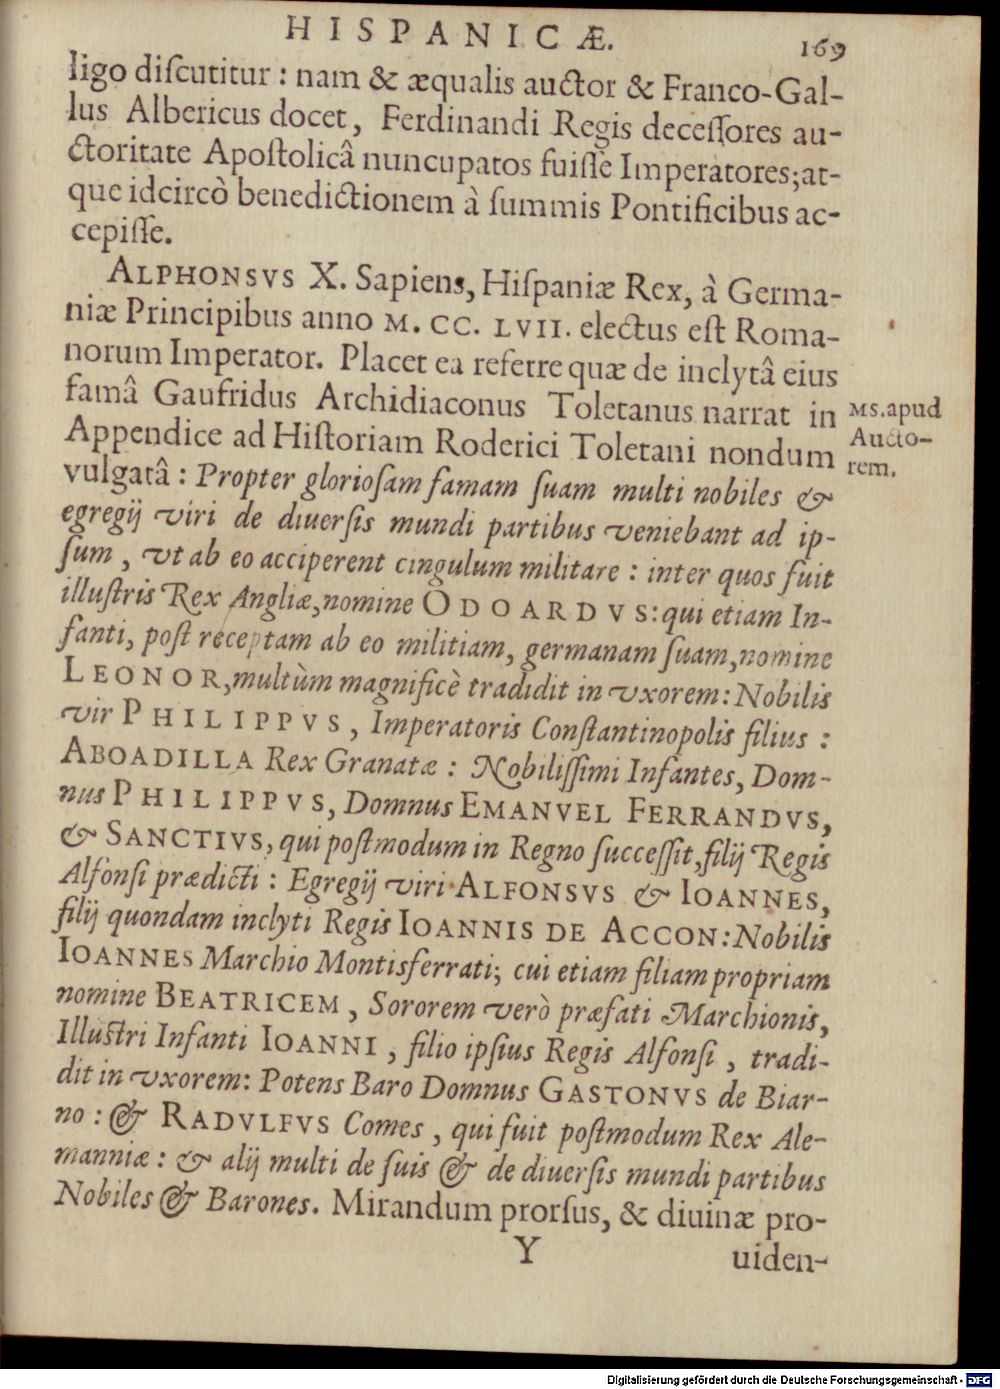 HISPANICÆ.
169
ligo diſcutitur : nam & æqualis auctor & Franco-Gal-
lus Albericus docet, Ferdinandi Regis deceſſores au-
ctoritate Apoſtolicâ nuncupatos fuiſſe Imperatores; at-
que idcircò benedictionem à ſummis Pontificibus ac-
cepiſſe.
ALPHONSVS X. Sapiens, Hiſpaniæ Rex, à Germa-
niæ Principibus anno M. CC. LVII. electus eſt Roma-
norum Imperator. Placet ea referre quæ de inclytâ eius
famâ Gaufridus Archidiaconus Toletanus narrat in
Appendice ad Hiſtoriam Roderici Toletani nondum
vulgatâ : Propter glorioſam famam ſuam multi nobiles &
egregij viri de diuerſis mundi partibus veniebant ad ip-
ſum, vt ab eo acciperent cingulum militare : inter quos fuit
illuſtris Rex Angliæ, nomine ODOARDVS: qui etiam In-
fanti, poſt receptam ab eo militiam, germanam ſuam, nomine
LEONOR, multùm magnificè tradidit in vxorem: Nobilis
vir PHILIPPVS, Imperatoris Conſtantinopolis filius :
ABOADILLA Rex Granatæ : Nobiliſſimi Infantes, Dom-
nus PHILIPPVS, Domnus EMANVEL FERRANDVS,
& SANCTIVS, qui poſtmodum in Regno ſucceſſit, filij Regis
Alfonſi prædicti : Egregij viri ALFONSVS & IOANNES,
filij quondam inclyti Regis IOANNIS DE ACCON: Nobilis
IOANNES Marchio Montisferrati; cui etiam filiam propriam
nomine BEATRICEM, Sororem verò præfati Marchionis,
Illuſtri Infanti IOANNI, filio ipſius Regis Alfonſi, tradi-
dit in vxorem: Potens Baro Domnus GASTONVS de Biar-
no : & RADVLFVS Comes, qui fuit poſtmodum Rex Ale-
manniæ : & alij multi de ſuis & de diuerſis mundi partibus
Nobiles & Barones. Mirandum prorſus, & diuinæ pro-
Y
uiden-
MS. apud
Aucto-
rem.
Digitalisierung gefördert durch die Deutsche Forschungsgemeinschaft - DFG